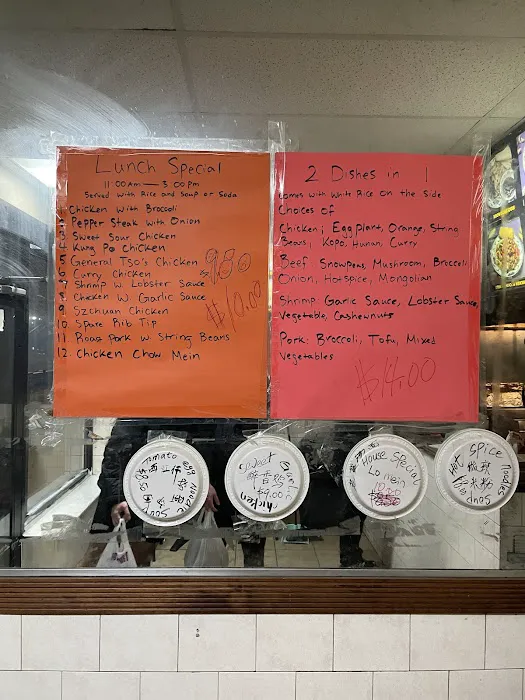 Lunch Special
11:00Am — 3:00Pm
Served with Rice and Soup or Soda
1 Chicken with Broccoli
2 Pepper Steak with Onion
3 Sweet Sour Chicken
4 Kung Pa Chicken
5 General Tso's Chicken
6 Curry Chicken
7 Shrimp w Lobster Sauce
8 Chicken W Garlic Sauce
9 Szchuan Chicken
10 Spare Rib Tip
11 Roast Pork w String Beans
12 Chicken Chow Mein
$10.00
2 Dishes in 1
Comes with White Rice on the Side
Choices of
Chicken; Eggplant, Orange, String
Bears, Kopo, Hunan, Curry
Beef Snowpeas, Mushroom, Broccoli
Onion, Hotspice, Mongolian
Shrimp Garlic Sauce, Lobster Sauce,
Vegetable, Cashewnuts
Pork: Broccoli, Tofu, Mixed
Vegetables
$14.00
Tomato egg
Noodle
Soup
Sweet
chicken
$9.00
House Special
Lo mein
Hot Spice
Noodles
Soup